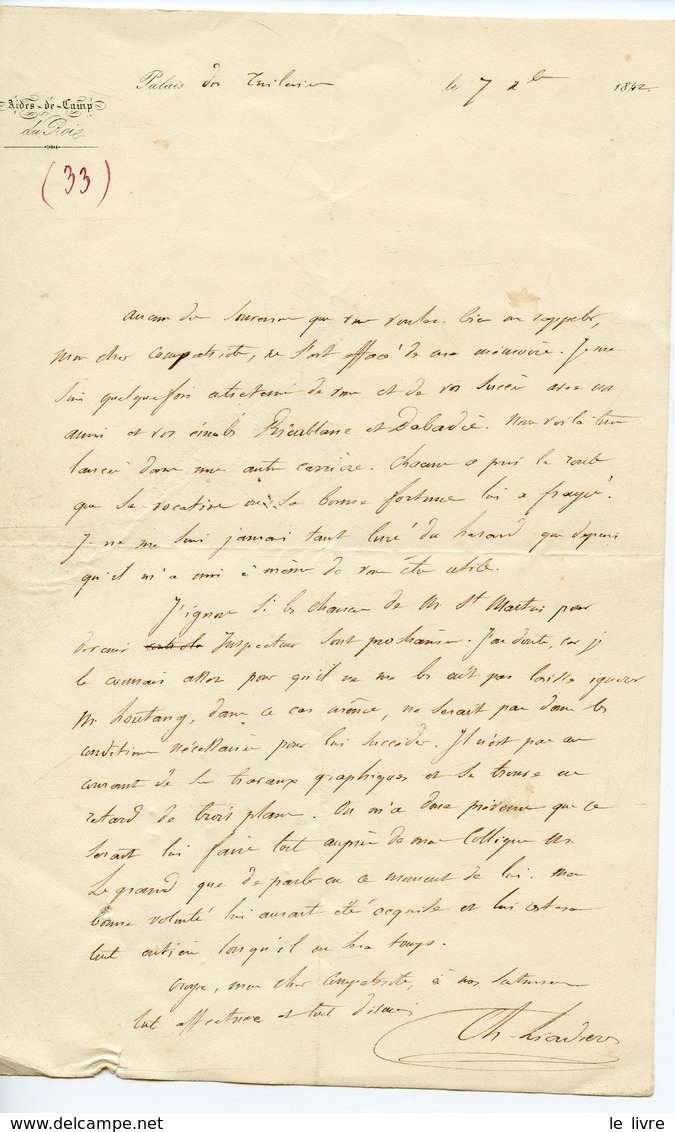 Palais des Tuileries le 7 xbre 1842
Aides-de-Camp
du Roi
(33)
Aucun des souvenirs que vous voulez bien me rappeler,
Mon cher compatriote, ne s'est effacé de ma mémoire. Je me
suis quelquefois entretenu de vous et de vos succès avec vos
amis et vos émules et Dabadie. Nous voilà tous
lancés dans une autre carrière. Chacun a pris la route
que sa vocation ou sa bonne fortune lui a frayé.
Je ne me suis jamais tant loué du hasard que depuis
qu'il m'a mis à même de vous être utile.
J'ignore si les chances de Mr St Martin pour
devenir Inspecteur sont prochaines. J'en doute, car je
le connais assez pour qu'il ne me les eut pas laissé ignorer
Mr, dans ce cas même, ne serait pas dans les
conditions nécessaires pour lui succéder. Il n'est pas au
courant de ses travaux graphiques et se trouve en
retard de trois plans. On m'a donc prévenu que ce
serait lui faire tort auprès de mon collègue Mr
Legrand que de parler en ce moment de lui. Ma
bonne volonté lui aurait été acquise et lui
tout entière lorsqu'il en sera temps.
Croyez, mon cher compatriote, à mes sentimens
tout affectueux et tout dévoués
Th.
le livre
delcampe.net